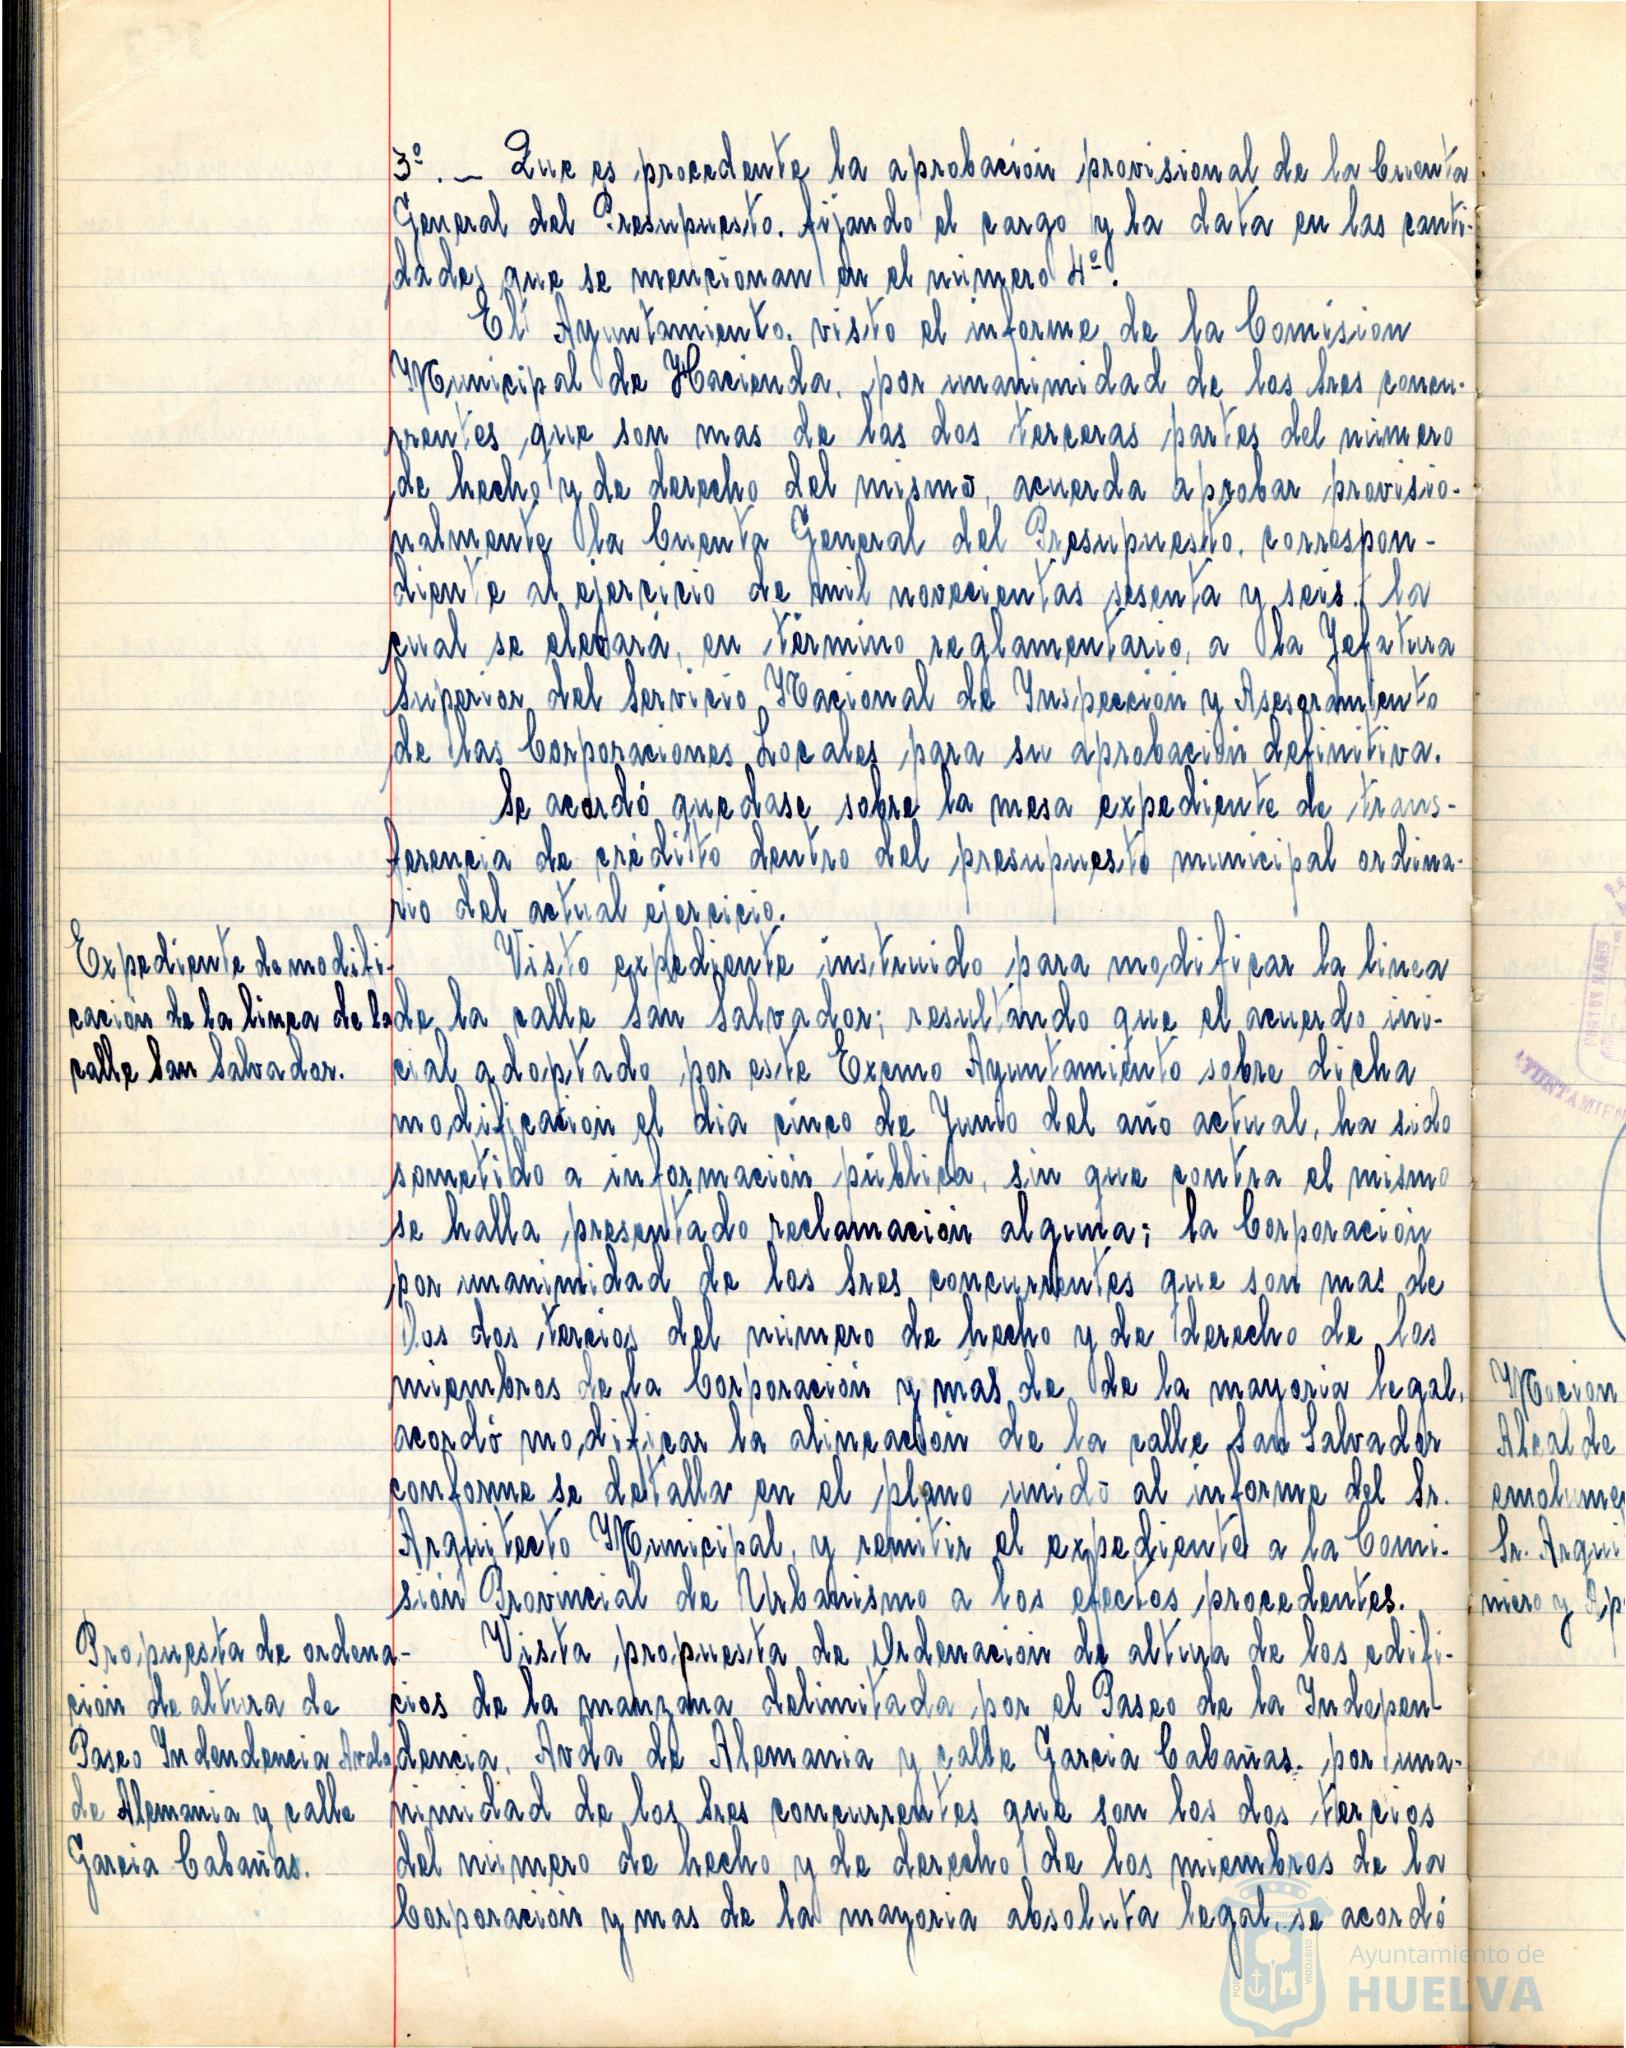 3º. — Que es procedente la aprobación provisional de la Cuenta
General del Presupuesto. fijando el cargo y la data en las canti-
dades que se mencionan en el número 4º.
El Ayuntamiento. visto el informe de la Comision
Municipal de Hacienda, por unanimidad de los Sres concu-
rrentes que son mas de las dos terceras partes del número
de hecho y de derecho del mismo, acuerda aprobar provisio-
nalmente la Cuenta General del Presupuesto, correspon-
diente al ejercicio de mil novecientas sesenta y seis. la
cual se elevará, en término reglamentario, a la Jefatura
Superior del Servicio Nacional de Inspección y Asesoramiento
de las Corporaciones Locales para su aprobación definitiva.
Se acordó quedase sobre la mesa expediente de trans-
ferencia de crédito dentro del presupuesto municipal ordina-
rio del actual ejercicio.
Expediente de modifi-
cación de la linea de la
calle San Salvador.
Visto expediente instruido para modificar la linea
de la calle San Salvador; resultando que el acuerdo ini-
cial adoptado por este Excmo Ayuntamiento sobre dicha
modificación el dia cinco de Junio del año actual, ha sido
sometido a información pública, sin que contra el mismo
se halla presentado reclamación alguna; la Corporación
por unanimidad de los Sres concurrentes que son mas de
los dos tercios del número de hecho y de derecho de los
miembros de la Corporación y más de de la mayoria legal,
acordó modificar la alineación de la calle San Salvador
conforme se detalla en el plano unido al informe del Sr.
Arquitecto Municipal, y remitir el expediente a la Comi-
sión Provincial de Urbanismo a los efectos procedentes.
Propuesta de ordena-
ción de altura de
Paseo Indendencia Avda
de Alemania y calle
Garcia Cabañas.
Vista propuesta de Ordenación de altura de los edifi-
cios de la manzana delimitada por el Paseo de la Indepen-
dencia, Avda de Alemania y calle Garcia Cabañas. por una-
nimidad de los Sres concurrentes que son los dos tercios
del número de hecho y de derecho de los miembros de la
Corporación y mas de la mayoria absoluta legal, se acordó
Mocion
Alcalde
emolume
Sr. Arqui
niero y Ap
Ayuntamiento de
HUELVA